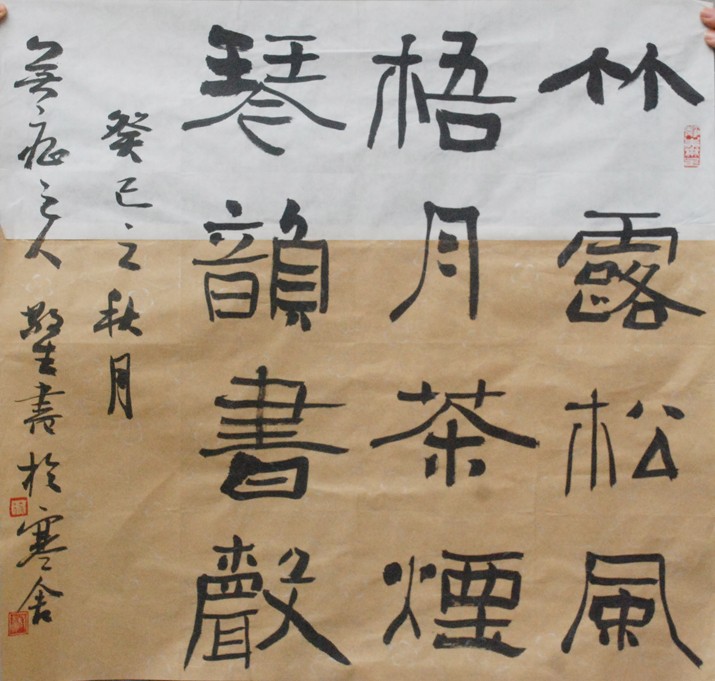 竹露松風
梧月茶煙
琴韻書聲
癸巳之秋月
無痴之人敬生書於寒舍